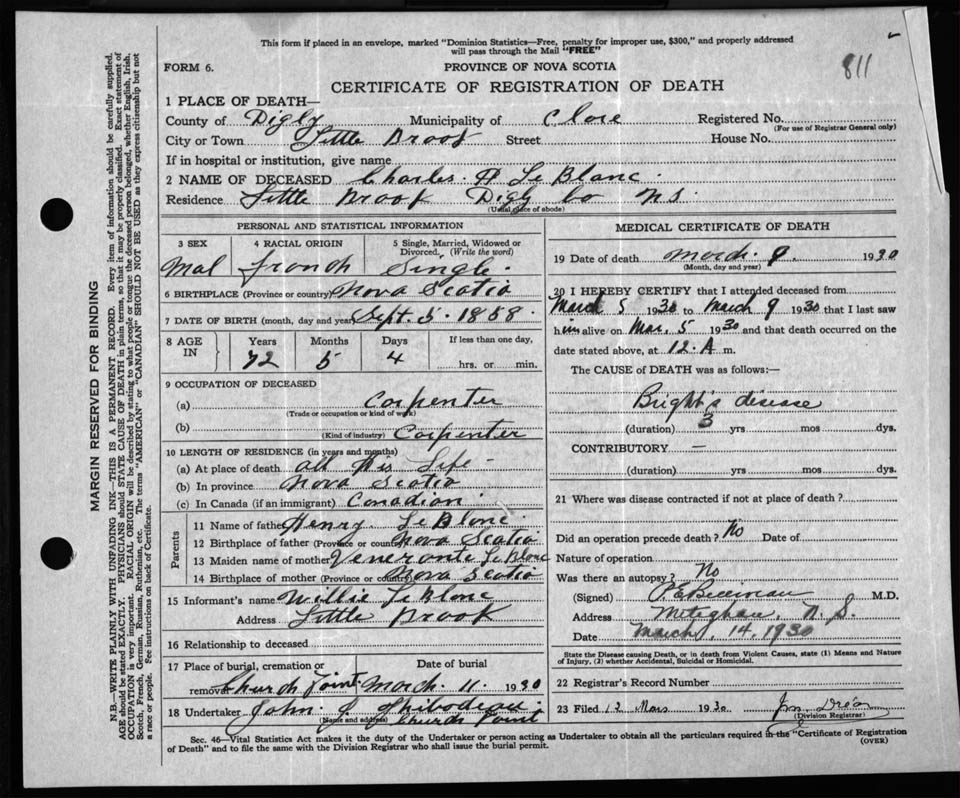 This form if placed in an envelope, marked "Dominion Statistics—Free, penalty for improper use, $300," and properly addressed
will pass through the Mail "FREE"
811
FORM 6.
PROVINCE OF NOVA SCOTIA
CERTIFICATE OF REGISTRATION OF DEATH
1 PLACE OF DEATH—
County of Digby Municipality of Clare Registered No.
(For use of Registrar General only)
City or Town Little Brook Street House No.
If in hospital or institution, give name
2 NAME OF DECEASED Charles A Le Blanc
Residence Little Brook Digby Co N.S.
(Usual place of abode)
PERSONAL AND STATISTICAL INFORMATION
3 SEX 4 RACIAL ORIGIN 5 Single, Married, Widowed or Divorced. (Write the word)
Mal French Single
6 BIRTHPLACE (Province or country) Nova Scotia
7 DATE OF BIRTH (month, day and year) Sept. 5. 1858
8 AGE IN Years Months Days If less than one day,
72 5 4 hrs. or min.
9 OCCUPATION OF DECEASED
(a) Carpenter
(Trade or occupation or kind of work)
(b) Carpenter
(Kind of industry)
10 LENGTH OF RESIDENCE (in years and months)
(a) At place of death all His Life
(b) In province Nova Scotia
(c) In Canada (if an immigrant) Canadian
Parents
11 Name of father Henry Le Blanc
12 Birthplace of father (Province or country) Nova Scotia
13 Maiden name of mother Le Blanc
14 Birthplace of mother (Province or country) Nova Scotia
15 Informant's name Willie Le Blanc
Address Little Brook
16 Relationship to deceased
17 Place of burial, cremation or Date of burial
removal Church Point March 11. 1930
18 Undertaker John Thibodeau
(Name and address) Church Point
MEDICAL CERTIFICATE OF DEATH
19 Date of death March 9 1930
(Month, day and year)
20 I HEREBY CERTIFY that I attended deceased from
March 5 1930 to March 9 1930 that I last saw
him alive on Mar. 5 1930 and that death occurred on the
date stated above, at 12.A m.
The CAUSE of DEATH was as follows:—
Bright's disease
(duration) 3 yrs mos dys.
CONTRIBUTORY —
(duration) yrs mos dys.
21 Where was disease contracted if not at place of death?
Did an operation precede death? No Date of
Nature of operation
Was there an autopsy? No
(Signed) M.D.
Address Meteghan, N.S.
Date March 14, 1930
State the Disease causing Death, or in death from Violent Causes, state (1) Means and Nature
of Injury, (2) whether Accidental, Suicidal or Homicidal.
22 Registrar's Record Number
23 Filed 12 Mars 1930
(Division Registrar)
Sec. 46—Vital Statistics Act makes it the duty of the Undertaker or person acting as Undertaker to obtain all the particulars required in the "Certificate of Registration
of Death" and to file the same with the Division Registrar who shall issue the burial permit.
(OVER)
MARGIN RESERVED FOR BINDING
N.B.—WRITE PLAINLY WITH UNFADING INK—THIS IS A PERMANENT RECORD. Every item of information should be carefully supplied.
AGE should be stated EXACTLY. PHYSICIANS should STATE CAUSE OF DEATH in plain terms, so that it may be properly classified. Exact statement of
OCCUPATION is very important. RACIAL ORIGIN will be described by stating to what people or tongue the deceased person belonged, whether English, Irish,
Scotch, French, German, Russian, Ruthenian, etc. The terms "AMERICAN" or "CANADIAN" SHOULD NOT BE USED as they express citizenship but not
a race or people. See instructions on back of Certificate.